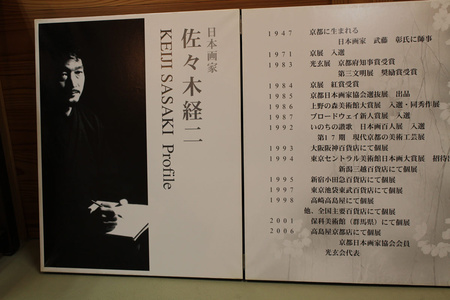 日本画家
佐々木経二
KEIJI SASAKI Profile
1947 京都に生まれる
日本画家 武藤 彰氏に師事
1971 京展 入選
1983 光玄展 京都府知事賞受賞
第三文明展 奨励賞受賞
1984 京展 紅賞受賞
1985 京都日本画家協会選抜展 出品
1986 上野の森美術館大賞展 入選・同秀作展
1987 ブロードウェイ新人賞展 入選
1992 いのちの讃歌 日本画百人展 入選
第17期 現代京都の美術工芸展
1993 大阪阪神百貨店にて個展
1994 東京セントラル美術館日本画大賞展 招待出
新潟三越百貨店にて個展
1995 新宿小田急百貨店にて個展
1997 東京池袋東武百貨店にて個展
1998 高崎高島屋にて個展
他、全国主要百貨店にて個展
2001 保科美術館（群馬県）にて個展
2006 高島屋京都店にて個展
京都日本画家協会会員
光玄会代表